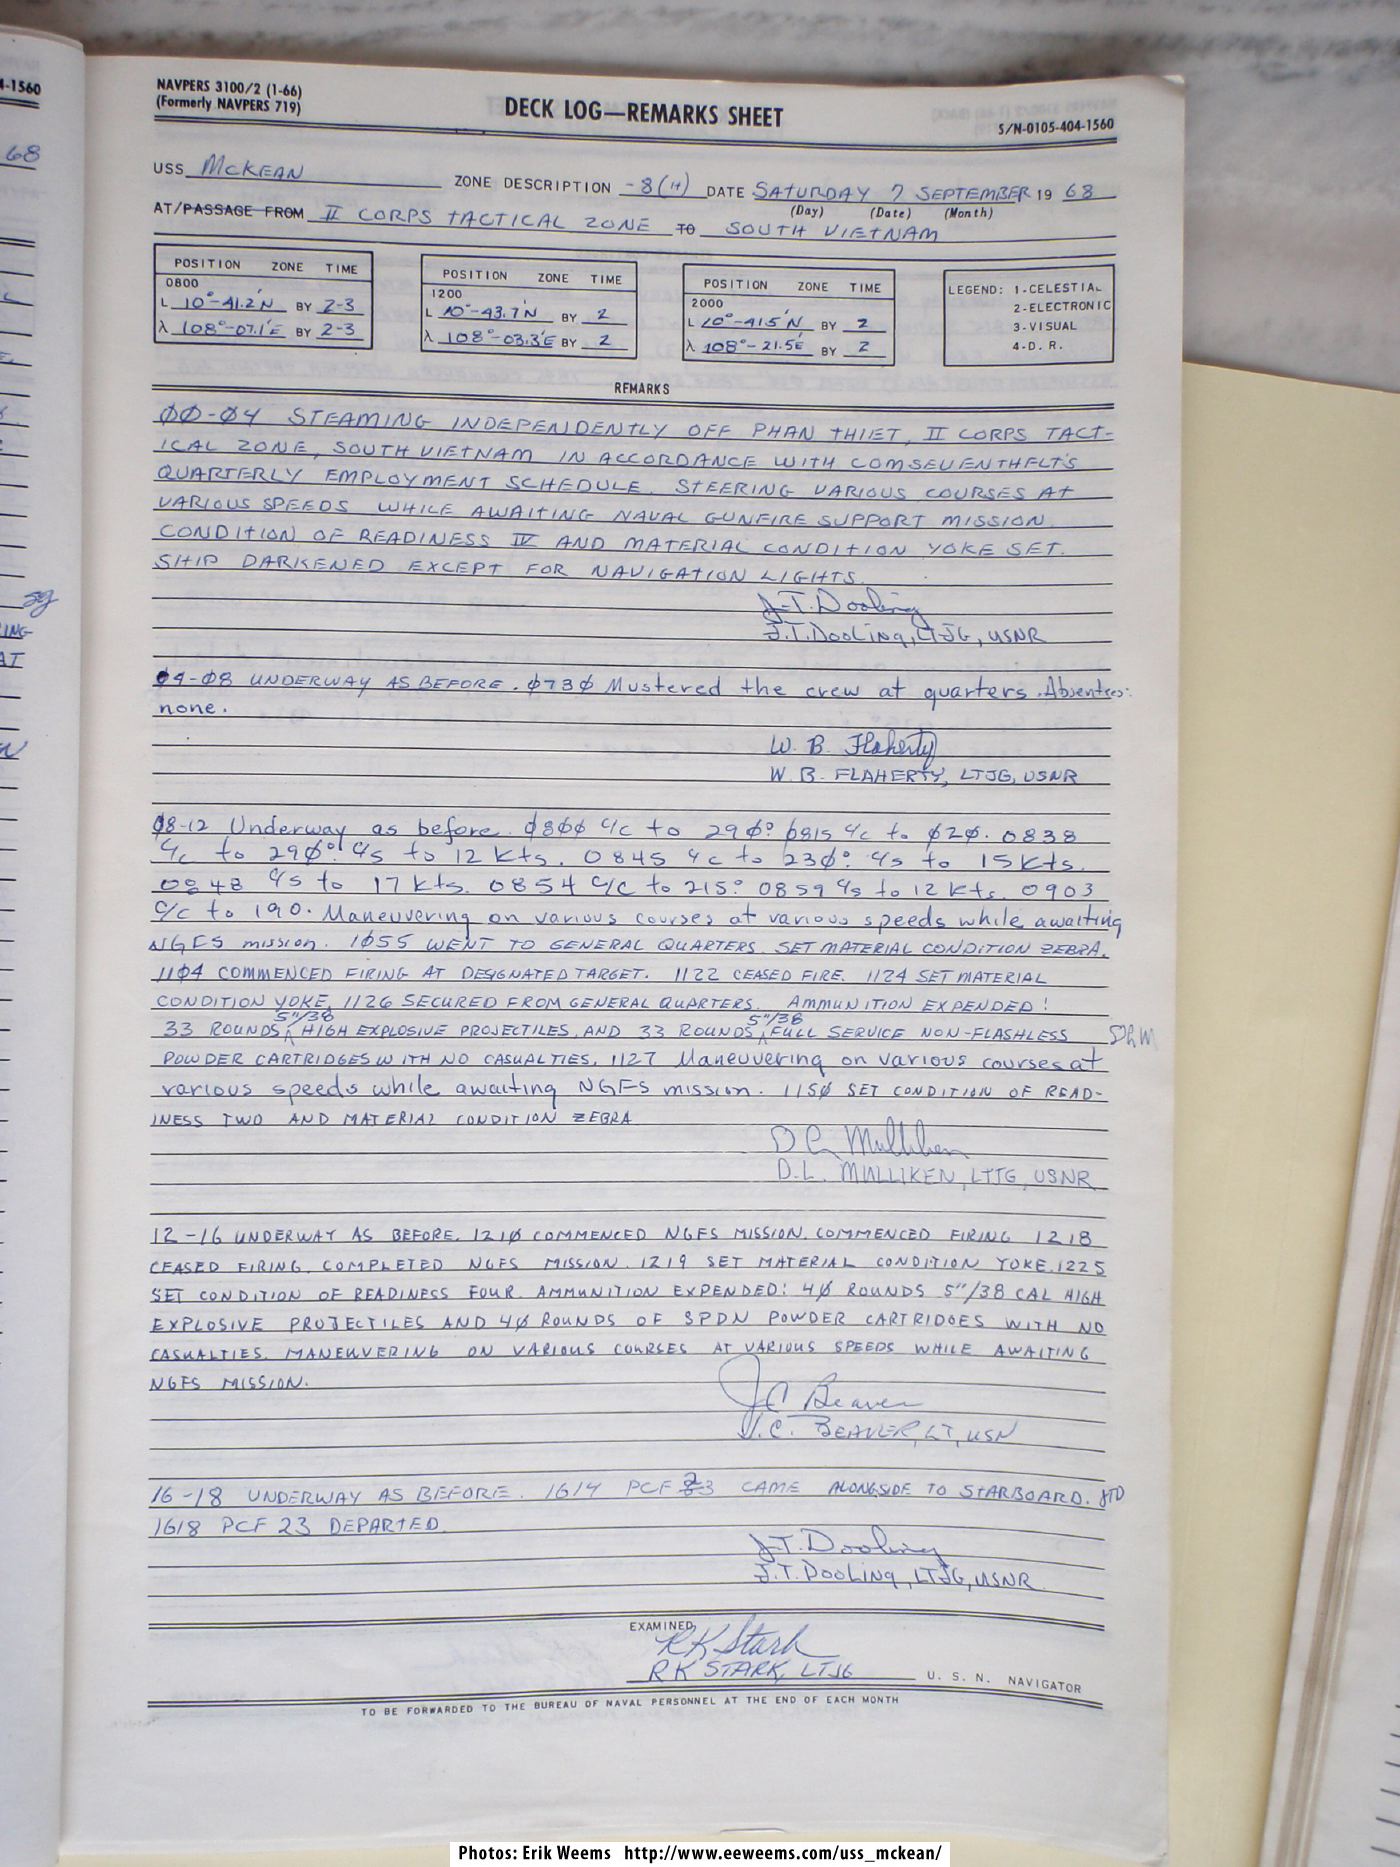 4-1560
68
NAVPERS 3100/2 (1-66)
(Formerly NAVPERS 719)
DECK LOG—REMARKS SHEET
S/N-0105-404-1560
USS McKEAN ZONE DESCRIPTION -8(H) DATE SATURDAY 7 SEPTEMBER 19 68
(Day) (Date) (Month)
AT/PASSAGE FROM II CORPS TACTICAL ZONE TO SOUTH VIETNAM
POSITION ZONE TIME
0800
L 10°-41.2'N BY 2-3
λ 108°-07.1'E BY 2-3
POSITION ZONE TIME
1200
L 10°-43.7'N BY 2
λ 108°-03.3'E BY 2
POSITION ZONE TIME
2000
L 10°-41.5'N BY 2
λ 108°-21.5'E BY 2
LEGEND: 1-CELESTIAL
2-ELECTRONIC
3-VISUAL
4-D. R.
REMARKS
00-04 STEAMING INDEPENDENTLY OFF PHAN THIET, II CORPS TACT-
ICAL ZONE, SOUTH VIETNAM IN ACCORDANCE WITH COMSEVENTHFLT'S
QUARTERLY EMPLOYMENT SCHEDULE. STEERING VARIOUS COURSES AT
VARIOUS SPEEDS WHILE AWAITING NAVAL GUNFIRE SUPPORT MISSION.
CONDITION OF READINESS IV AND MATERIAL CONDITION YOKE SET.
SHIP DARKENED EXCEPT FOR NAVIGATION LIGHTS.
J.T. Dooling
J.T. Dooling, LTJG, USNR
04-08 UNDERWAY AS BEFORE. 0730 Mustered the crew at quarters. Absentees:
none.
W. B. Flaherty
W. B. FLAHERTY, LTJG, USNR
08-12 Underway as before. 0800 c/c to 290° 0815 c/c to 020. 0838
c/c to 290° c/s to 12 kts. 0845 c/c to 230° c/s to 15 kts.
0848 c/s to 17 kts. 0854 c/c to 215° 0859 c/s to 12 kts. 0903
c/c to 190. Maneuvering on various courses at various speeds while awaiting
NGFS mission. 1055 WENT TO GENERAL QUARTERS. SET MATERIAL CONDITION ZEBRA.
1104 COMMENCED FIRING AT DESIGNATED TARGET. 1122 CEASED FIRE. 1124 SET MATERIAL
CONDITION YOKE. 1126 SECURED FROM GENERAL QUARTERS. AMMUNITION EXPENDED:
33 ROUNDS 5"/38 HIGH EXPLOSIVE PROJECTILES, AND 33 ROUNDS 5"/38 FULL SERVICE NON-FLASHLESS DLM
POWDER CARTRIDGES WITH NO CASUALTIES. 1127 Maneuvering on various courses at
various speeds while awaiting NGFS mission. 1150 SET CONDITION OF READ-
INESS TWO AND MATERIAL CONDITION ZEBRA
D L Mulliken
D.L. MULLIKEN, LTJG, USNR
12-16 UNDERWAY AS BEFORE. 1210 COMMENCED NGFS MISSION. COMMENCED FIRING 1218
CEASED FIRING. COMPLETED NGFS MISSION. 1219 SET MATERIAL CONDITION YOKE. 1225
SET CONDITION OF READINESS FOUR. AMMUNITION EXPENDED: 40 ROUNDS 5"/38 CAL HIGH
EXPLOSIVE PROJECTILES AND 40 ROUNDS OF SPDN POWDER CARTRIDGES WITH NO
CASUALTIES. MANEUVERING ON VARIOUS COURSES AT VARIOUS SPEEDS WHILE AWAITING
NGFS MISSION.
J C Beaver
J. C. BEAVER, LT, USN
16-18 UNDERWAY AS BEFORE. 1614 PCF 23 CAME ALONGSIDE TO STARBOARD. JTD
1618 PCF 23 DEPARTED.
J.T. Dooling
J.T. Dooling, LTJG, USNR
EXAMINED
RK Stark
RK STARK, LTJG U. S. N. NAVIGATOR
TO BE FORWARDED TO THE BUREAU OF NAVAL PERSONNEL AT THE END OF EACH MONTH
Photos: Erik Weems http://www.eeweems.com/uss_mckean/